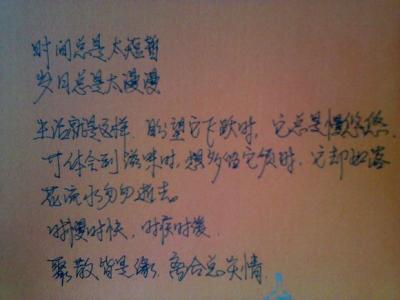 时间总是太短暂
岁月总是太漫漫
生活就是这样。盼望它飞跃时,它总是慢悠悠。
才体会到滋味时,想多留它须时,它却如落
花流水匆匆逝去。
时慢时快,时疾时缓。
聚散皆是缘,离合总关情。